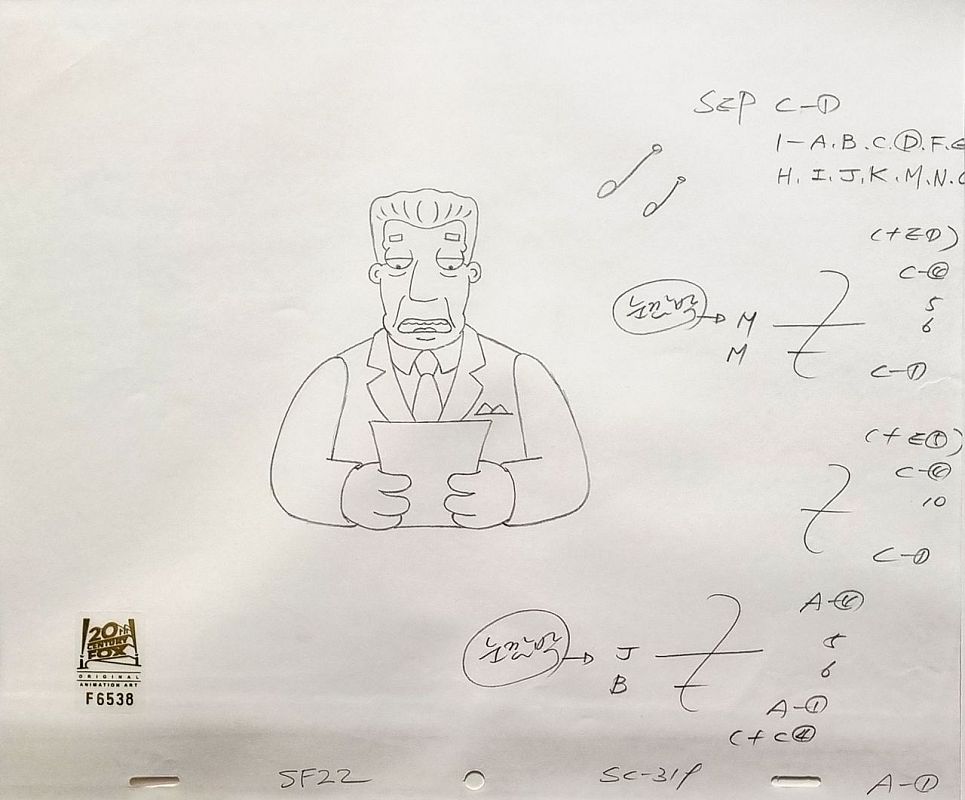 SEP C-①
1-A.B.C.Ⓓ.F.G
H.I.J.K.M.N.O
(+E①)
C-④
5
눈깜박 → M
6
M
C-①
(+E①)
C-④
10
C-①
A-④
5
눈깜박 → J
6
B
A-①
(+C④)
20TH
CENTURY
FOX
ORIGINAL
ANIMATION ART
F6538
SF22
SC-318
A-①